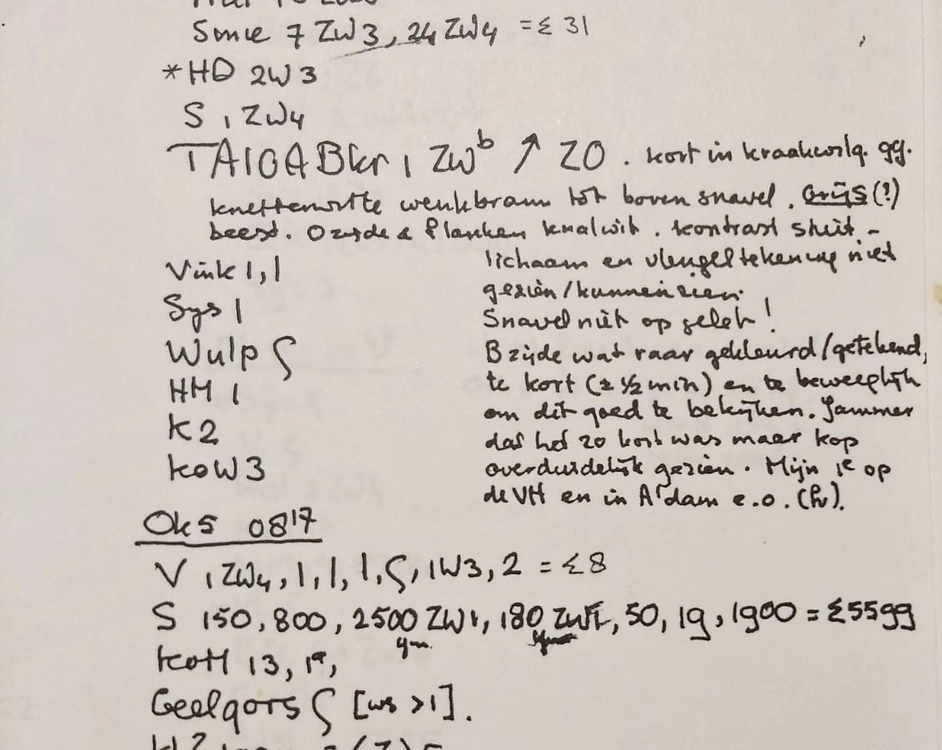 Smie 7 ZW3, 24 ZW4 = Σ 31
*HD 2W3
S 1 ZW4
TAIGABkr 1 ZWb ↑ ZO. kort in kraakwilg. gg.
knetterwitte wenkbrauw tot boven snavel. Grijs (!)
beest. Ozijde & flanken knalwit. kontrast stuit-
lichaam en vleugeltekening niet
gezien/kunnen zien.
Snavel niet op gelet!
Bzijde wat raar gekleurd/getekend,
te kort (± ½ min) en te beweeglijk
om dit goed te bekijken. Jammer
dat het zo kort was maar kop
overduidelijk gezien. Mijn 1e op
de VH en in A'dam e.o. (hv).
Vink 1, 1
Sijs 1
Wulp ς
HM 1
K2
KoW3
Ok 5 0817
V 1 ZW4, 1, 1, 1, ς, 1W3, 2 = Σ8
S 150, 800, 2500 ZW1, 180, 50, 19, 1900 = Σ5599
KoM 13, 19,
Geelgors ς [ws >1].